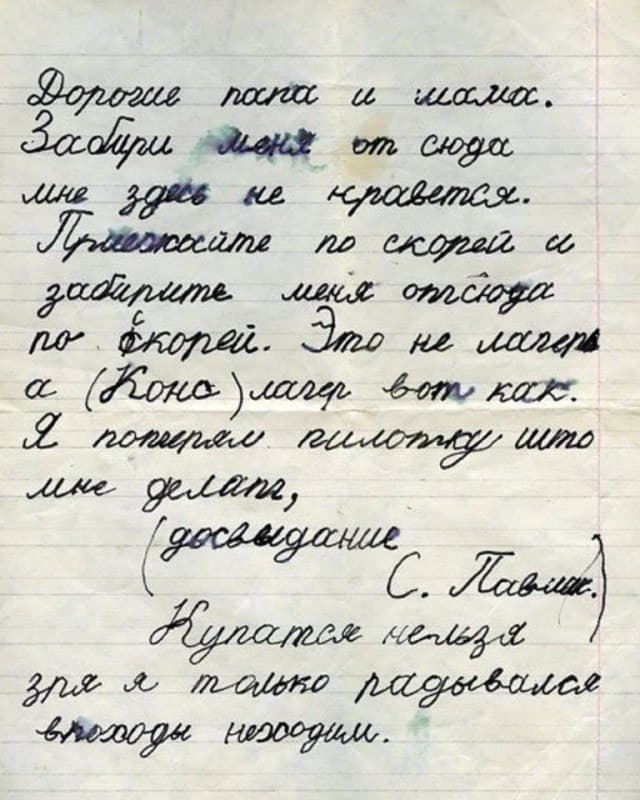 Дорогие папа и мама.
Забири меня от сюда
мне здесь не нравется.
Приезжайте по скорей и
забирите меня отсюда
по скорей. Это не лагерь
а (Конс) лагер вот как.
Я потерял пилотку што
мне делат,
(досвидание
С. Павлик.)
Купатся нельзя
зря я только радывался
впоходы неходим.